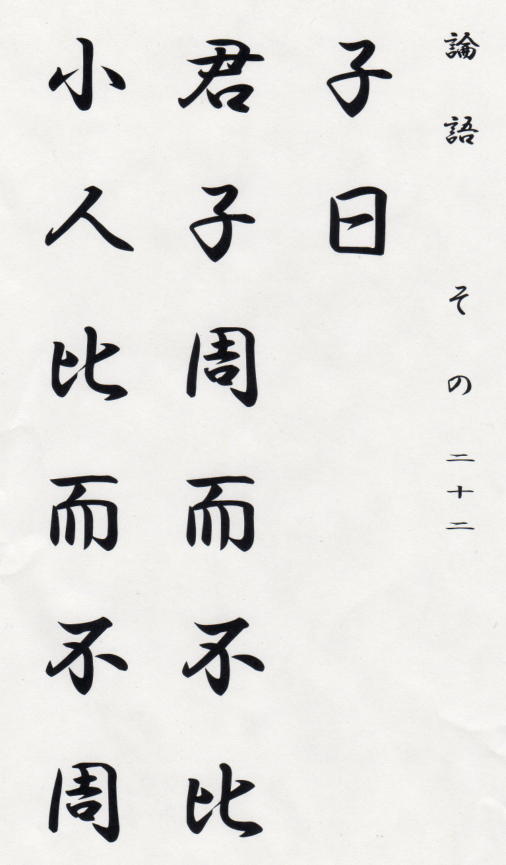 論語 その二十二
子曰
君子周而不比
小人比而不周